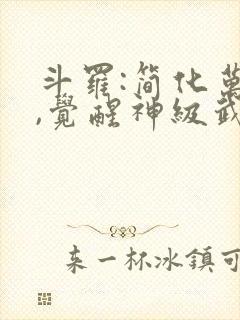 斗羅:簡化萬
,覺醒神級武
来一杯冰鎮可